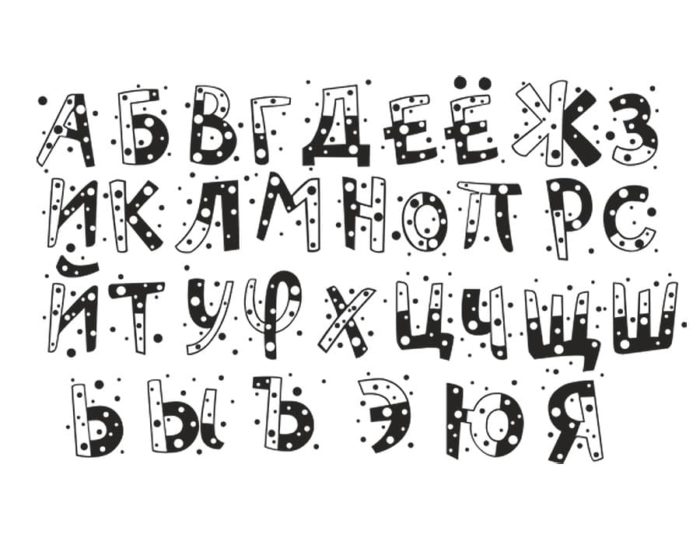 АБВГДЕЁЖЗ
ИКЛМНОПРС
ЙТУФХЦЧЩШ
ЬЫЪЭЮЯ